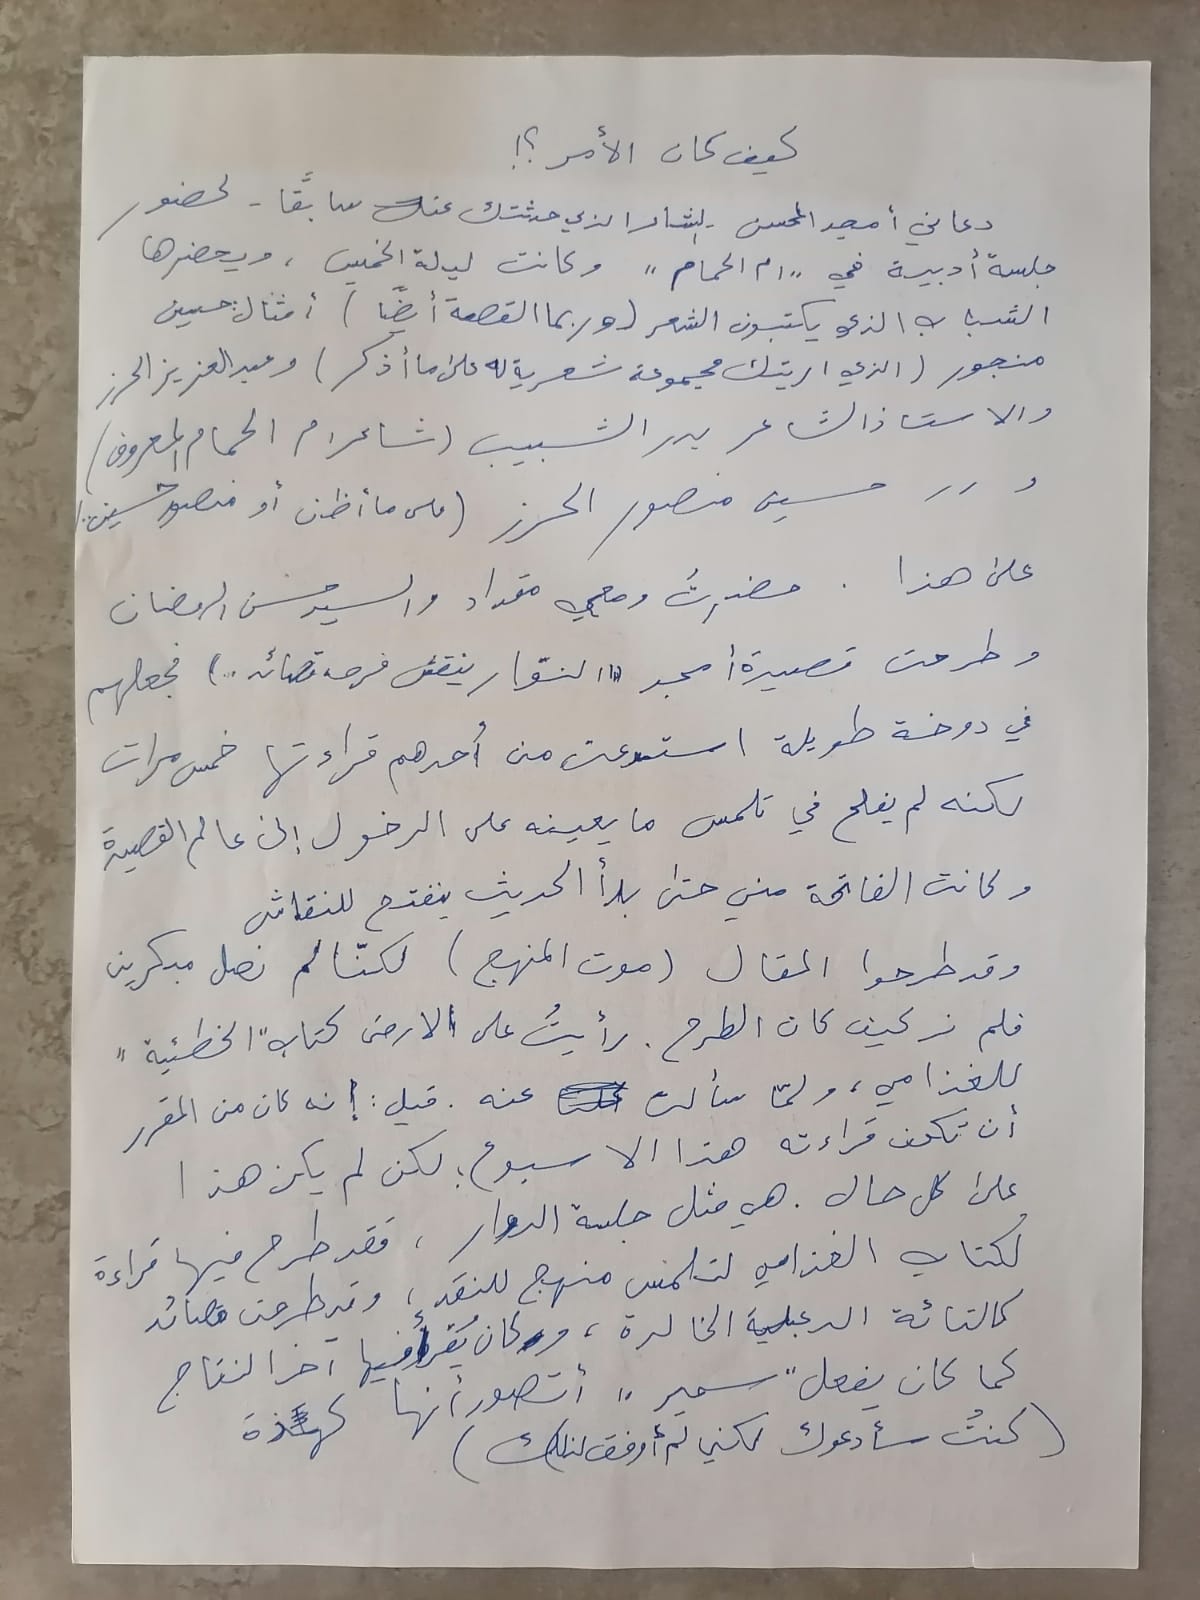 كيف كان الأمر؟!
دعاني أمجد المحسن -الشاعر الذي حدثتك عنه سابقًا- لحضور
جلسة أدبية في "ام الحمام" وكانت ليلة الخميس، ويحضرها
الشباب الذي يكتبون الشعر (وربما القصة أيضًا) أمثال: حسين
منجور (الذي اريتك مجموعة شعرية له على ما أذكر) وعبد العزيز الحرز
والاستاذ الشاعر بدر الشبيب (شاعر ام الحمام المعروف)
و حسين منصور الحرز (على ما أظن أو منصور حسين!)
على هذا . حضرتُ ومعي مقداد والسيد حسن الرمضان
وطرحت قصيدة أمجد "النوّار ينقش فرحه قصائد.." فجعلهم
في دوخة طويلة استدعت من أحدهم قراءتها خمس مرات
لكنه لم يفلح في تلمس ما يعينه على الدخول إلى عالم القصيدة
وكانت الفاتحة مني حتى بدأ الحديث ينفتح للنقاش
وقد طرحوا المقال (موت المنهج) لكنّا لم نصل مبكرين
فلم نر كيف كان الطرح. رأيتُ على الارض كتاب "الخطيئة"
للغذامي، ولمّا سألت عنه. قيل: إنه كان من المقرر
أن تكون قراءته هذا الاسبوع؛ لكن لم يكن هذا
على كل حال. هي مثل جلسة الدوار، فقد طرح فيها قراءة
لكتاب الغذامي لتلمس منهج للنقد، وقد طرحت قصائد
كالتائة الدعبلية الخالدة، وكان يُقرأ فيها آخر النتاج
كما كان يفعل "سمير" أتصور أنها كهذة
(كنتُ سأدعوك لكني لم أوفق لذلك)